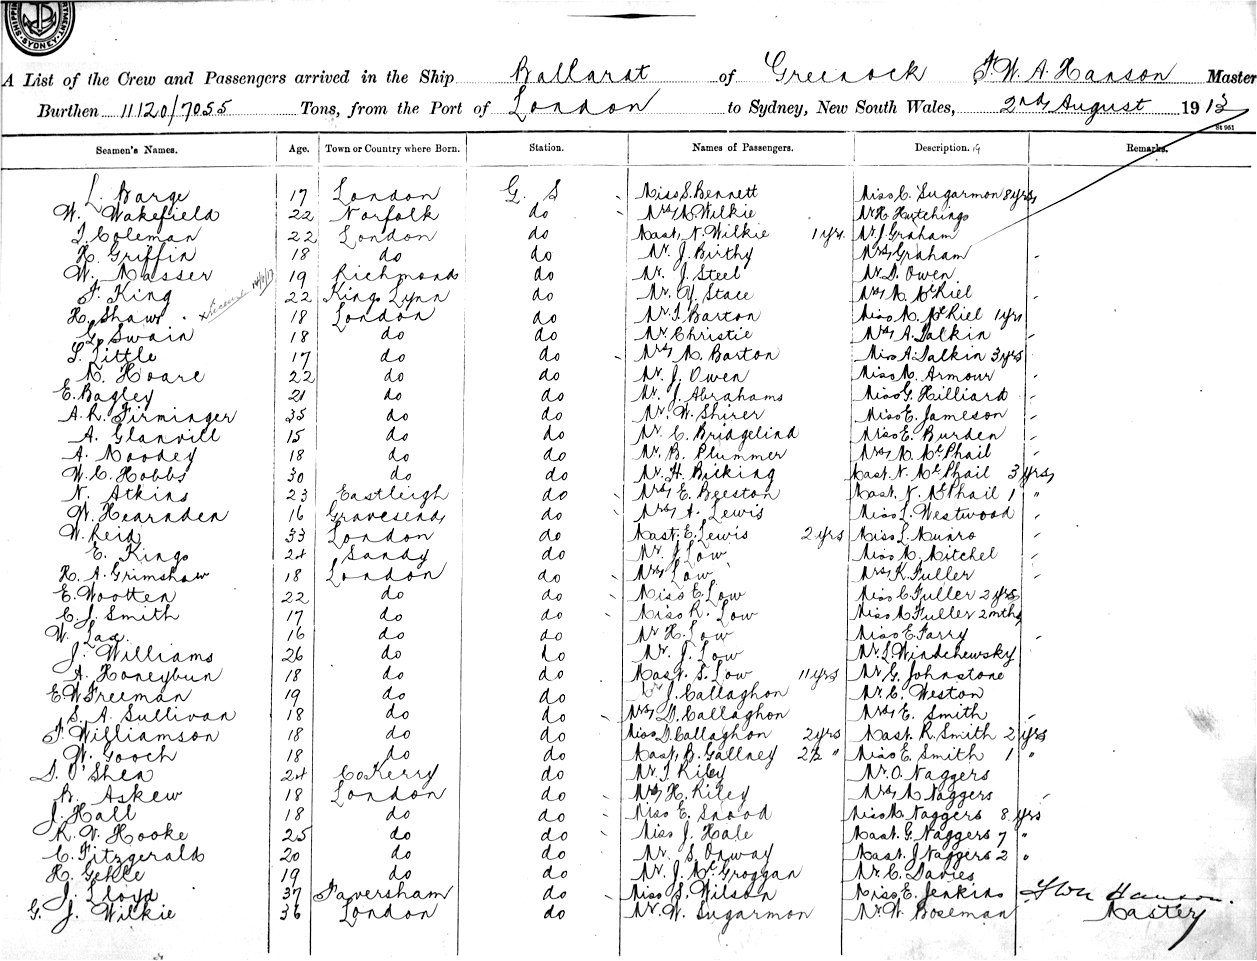 SHIPPING
SYDNEY
A List of the Crew and Passengers arrived in the Ship Ballarat of Greenock F. W. A. Hanson Master
Burthen 11120/7055 Tons, from the Port of London to Sydney, New South Wales, 2nd August 1913
St 961
Seamen's Names. Age. Town or Country where Born. Station. Names of Passengers. Description. Remarks.
L. Barge 17 London G. S Miss S. Bennett Miss C. Sugarmon 8 yrs
W. Wakefield 22 Norfolk do Mrs M. Wilkie Mr H. Hutchings
J. Coleman 22 London do Mast. N. Wilkie 1 yr. Mr J. Graham
H. Griffin 18 do do Mr. J. Birthy Mrs Graham
W. Masser 19 Richmond do Mr. J. Steel Mr D. Owen
F. King 22 Kings Lynn do Mr. Y. Stace Mrs M. McKiel
H. Shaw 18 London do Mr. J. Barton Miss M. McKiel 1 yrs
G. Swain 18 do do Mr. Christie Mrs A. Salkin
L. Little 17 do do Mrs M. Barton Miss A. Salkin 3 yrs
M. Hoare 22 do do Mr. J. Owen Miss M. Armour
E. Bagley 21 do do Mr. J. Abrahams Miss G. Hilliard
A. R. Firminger 35 do do Mr. W. Shirer Miss E. Jameson
A. Glanvill 15 do do Mr. C. Bridgelind Miss E. Burden
A. Moodey 18 do do Mr. B. Plummer Mrs M. McPhail
W. C. Hobbs 30 do do Mr. H. Bicking Mast. N. McPhail 3 yrs
N. Atkins 23 Eastleigh do Mrs E. Beeston Mast. N. McPhail 1 "
W. Hearnden 16 Gravesend do Mrs A. Lewis Miss L. Westwood
W. Reid 33 London do Mast. E. Lewis 2 yrs Miss L. Munro
E. Kings 24 Sandy do Mr. J. Low Miss M. Mitchel
H. A. Grimshaw 18 London do Mrs Low Mrs K. Fuller
E. Wootten 22 do do Miss E. Low Miss C. Fuller 2 yrs
C. J. Smith 17 do do Miss R. Low Miss M. Fuller 2 mths
W. Lax 16 do do Mr H. Low Miss E. Farry
J. Williams 26 do do Mr. J. Low Mr. S. Windchewsky
A. Honeybun 18 do do Mast. S. Low 11 yrs Mr G. Johnstone
E. W. Freeman 19 do do Mr J. Callaghon Mr C. Weston
S. A. Sullivan 18 do do Mrs D. Callaghon Mrs E. Smith
F. Williamson 18 do do Miss D. Callaghon 2 yrs Mast. R. Smith 2 yrs
W. Gooch 18 do do Mast. B. Gallney 2½ " Miss E. Smith 1 "
D. O'Shea 24 Co Kerry do Mr. J. Riley Mr. O. Naggers
B. Askew 18 London do Mrs H. Riley Mrs M Naggers
J. Hall 18 do do Miss E. Snood Miss M. Naggers 8 yrs
R. V. Hooke 25 do do Miss J. Hale Mast. G. Naggers 7 "
C. Fitzgerald 20 do do Mr. S. Onway Mast. J. Naggers 2 "
H. 19 do do Mr. J. McGroggan Mr. C. Davies
J. Lloyd 37 Faversham do Miss S. Wilson Miss E. Jenkins F W A Hanson.
G. J. Wilkie 36 London do Mr. W. Sugarmon Mr. W. Boseman Master